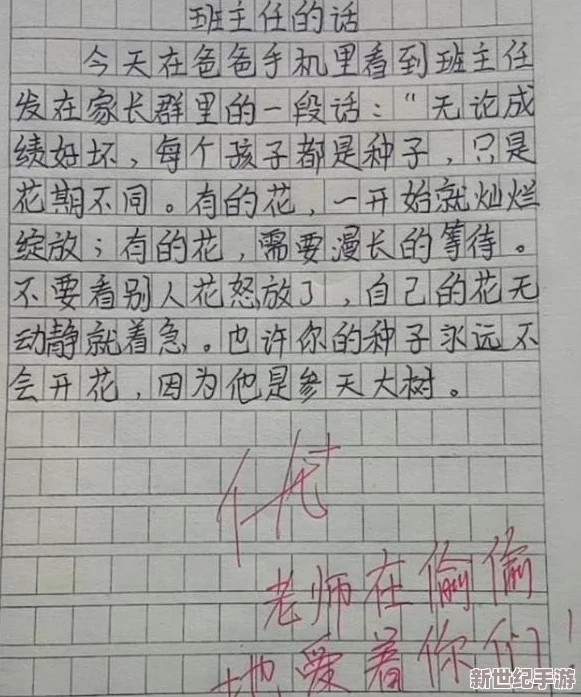 班主任的话
今天在爸爸手机里看到班主任
发在家长群里的一段话:“无论成
绩好坏,每个孩子都是种子,只是
花期不同。有的花,一开始就灿烂
绽放;有的花,需要漫长的等待。
不要看别人花怒放了,自己的花无
动静就着急。也许你的种子永远不
会开花,因为他是参天大树。
优+
老师在偷偷
地爱着你们!
新世纪手游